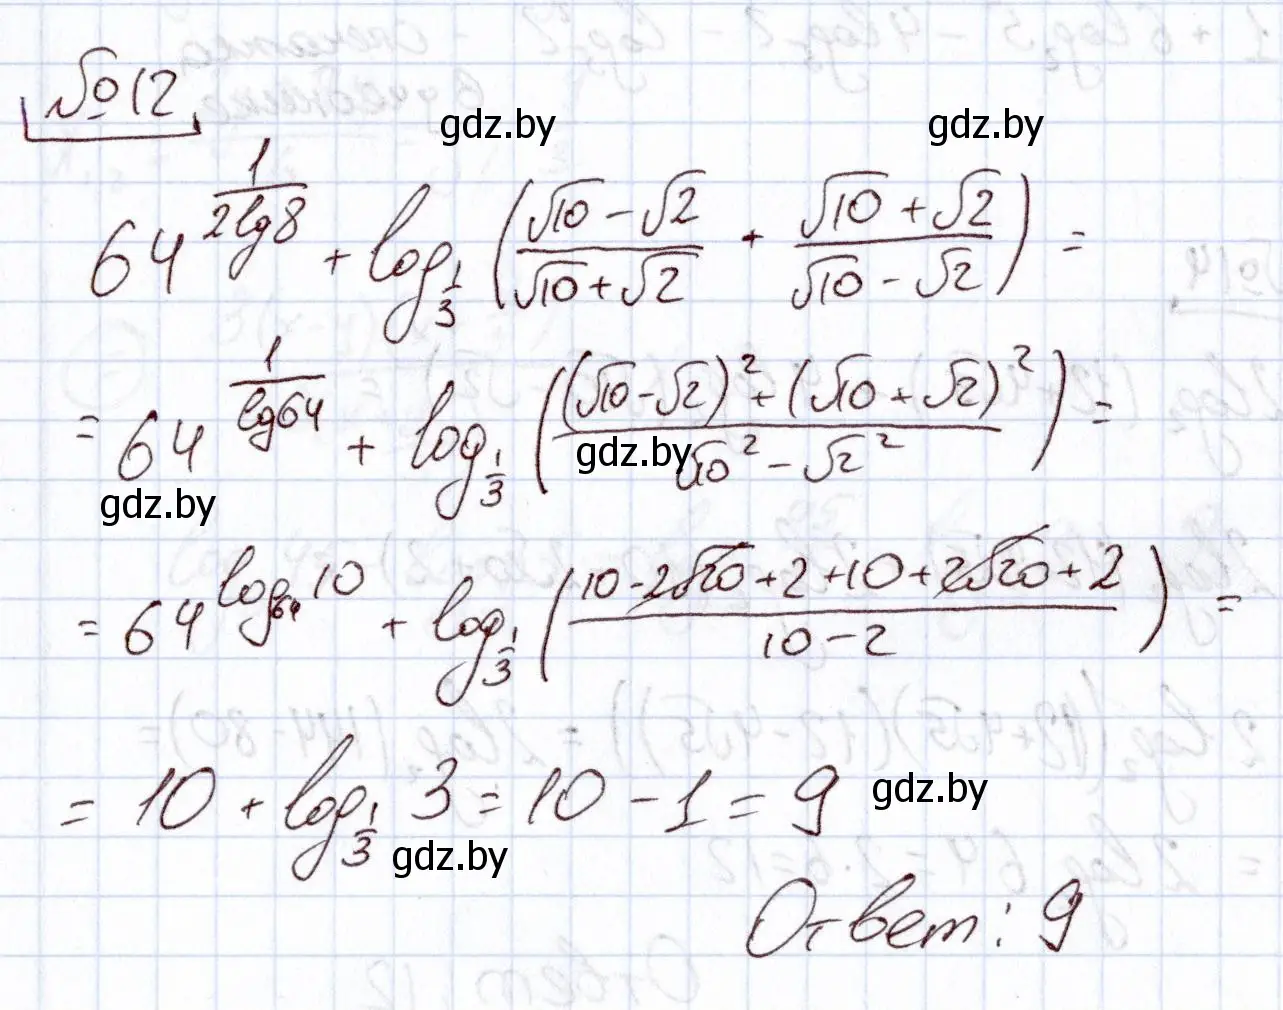 №12
gdz.by gdz.by
64^{\frac{1}{2lg8}} + log_{\frac{1}{3}} (\frac{√10 - √2}{√10 + √2} + \frac{√10 + √2}{√10 - √2}) =
= 64^{\frac{1}{lg64}} + log_{\frac{1}{3}} (\frac{(√10 - √2)^2 + (√10 + √2)^2}{√10^2 - √2^2}) =
gdz.by
gdz.by
= 64^{log_{64} 10} + log_{\frac{1}{3}} (\frac{10 - 2√20 + 2 + 10 + 2√20 + 2}{10 - 2}) =
= 10 + log_{\frac{1}{3}} 3 = 10 - 1 = 9
gdz.by
gdz.by
Ответ: 9